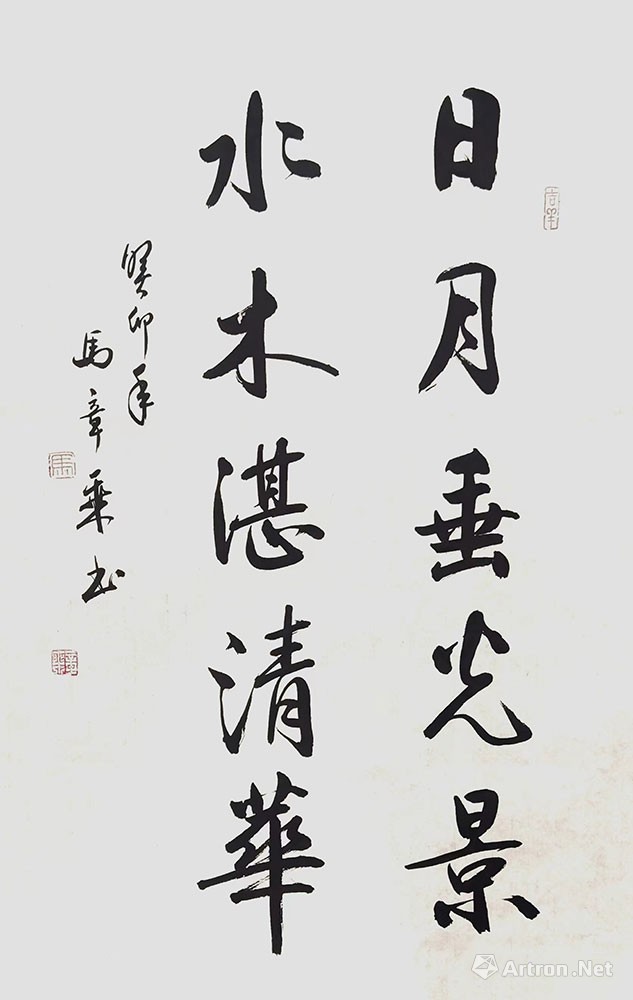 日月垂光景
水木湛清華
癸卯年
馬章乘书
Artron.Net